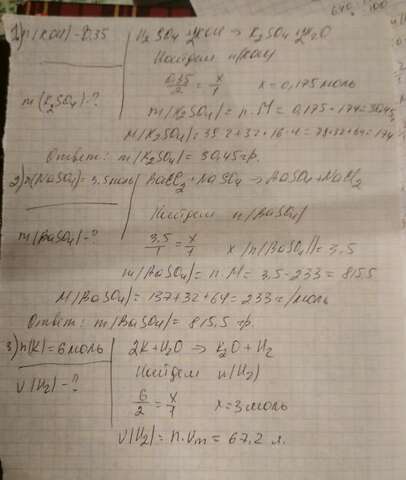 1) n(KOH) = 0.35
H2SO4 + 2KOH → K2SO4 + 2H2O
Найдем n(KOH)
0,35/2 = x/1 x = 0,175 моль
m(K2SO4) - ?
m(K2SO4) = n·M = 0,175·174 = 30,45
M(K2SO4) = 39·2+32+16·4 = 78+32+64 = 174
Ответ: m(K2SO4) = 30,45 гр.
2) n(NaSO4) = 3.5 моль
BaCl2 + NaSO4 → BaSO4 + NaCl2
Найдем n(BaSO4)
m(BaSO4) - ?
3,5/1 = x/1 x(n(BaSO4)) = 3,5
m(BaSO4) = n·M = 3,5·233 = 815.5
M(BaSO4) = 137+32+64 = 233 г/моль
Ответ: m(BaSO4) = 815,5 гр.
3) n(K) = 6 моль
2K + H2O → K2O + H2
Найдем n(H2)
V(H2) - ?
6/2 = x/1 x = 3 моль
V(H2) = n·Vm = 67,2 л.